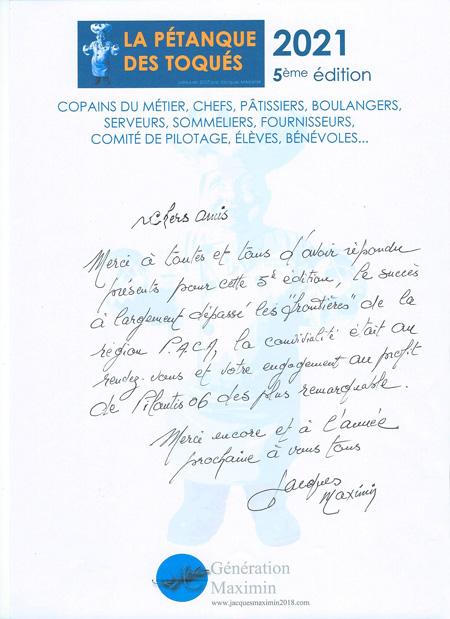 LA PÉTANQUE
DES TOQUÉS
2021
5ème édition
COPAINS DU MÉTIER, CHEFS, PÂTISSIERS, BOULANGERS,
SERVEURS, SOMMELIERS, FOURNISSEURS,
COMITÉ DE PILOTAGE, ÉLÈVES, BÉNÉVOLES...
Chers amis
Merci à toutes et tous d'avoir répondu
présents pour cette 5e édition, le succès
à largement dépassé les "frontières" de la
région P.A.C.A, la convivialité était au
rendez-vous et votre engagement au profit
de 06 des plus remarquable.
Merci encore et à l'année
prochaine à vous tous
Jacques
Maximin
Génération
Maximin
www.jacquesmaximin2018.com